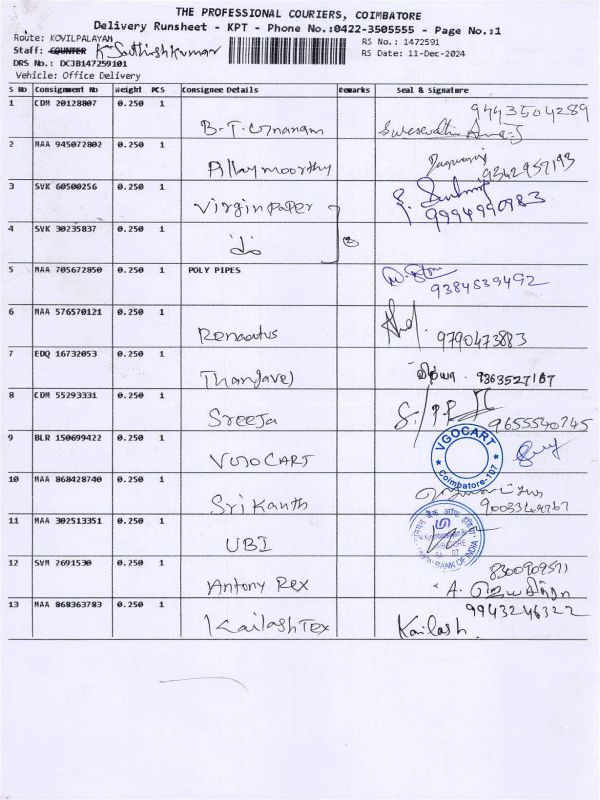 THE PROFESSIONAL COURIERS, COIMBATORE
Delivery Runsheet - KPT - Phone No.:0422-3505555 - Page No.:1
Route: KOVILPALAYAM
RS No.: 1472591
Staff: COUNTER K. Sathishkumar
RS Date: 11-Dec-2024
DRS No.: DCJB147259101
Vehicle: Office Delivery
S No Consignment No Weight PCS Consignee Details Remarks Seal & Signature
1 CDM 20128807 0.250 1 B.T. Gnanam 9443504289
2 MAA 945072802 0.250 1 Allaymoorthy 9342957193
3 SVK 60500256 0.250 1 Virginpaper 9994990983
4 SVK 30235837 0.250 1 do
5 MAA 705672850 0.250 1 POLY PIPES 9384639492
6 MAA 576570121 0.250 1 Renaatus 9790473883
7 EDQ 16732053 0.250 1 Thangavel 9363527167
8 CDM 55293331 0.250 1 Sreeja 9655540745
9 BLR 150699422 0.250 1 VGOCART VGOCART Coimbatore-107
10 MAA 868428740 0.250 1 Srikanth
11 MAA 302513351 0.250 1 UBI UNION BANK OF INDIA
12 SVM 2691530 0.250 1 Antony Rex 8300909571
13 MAA 868363783 0.250 1 KailashTex 9943246322
Kailash.